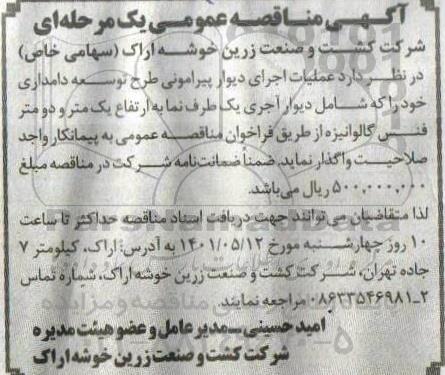 آگهی مناقصه عمومی یک مرحله‌ای
شرکت کشت و صنعت زرین خوشه اراک (سهامی خاص)
در نظر دارد عملیات اجرای دیوار پیرامونی طرح توسعه دامداری
خود را که شامل دیوار آجری یک طرف نما به ارتفاع یک متر و دو متر
فنس گالوانیزه از طریق فراخوان مناقصه عمومی به پیمانکار واجد
صلاحیت واگذار نماید. ضمناً ضمانت‌نامه شرکت در مناقصه مبلغ
۵۰۰,۰۰۰,۰۰۰ ریال می‌باشد.
لذا متقاضیان می‌توانند جهت دریافت اسناد مناقصه حداکثر تا ساعت
۱۰ روز چهارشنبه مورخ ۱۴۰۱/۰۵/۱۲ به آدرس: اراک، کیلومتر ۷
جاده تهران، شرکت کشت و صنعت زرین خوشه اراک، شماره تماس
۲_۰۸۶۳۳۵۴۶۹۸۱ مراجعه نمایند.
امید حسینی_مدیرعامل و عضو هیئت مدیره
شرکت کشت و صنعت زرین خوشه اراک